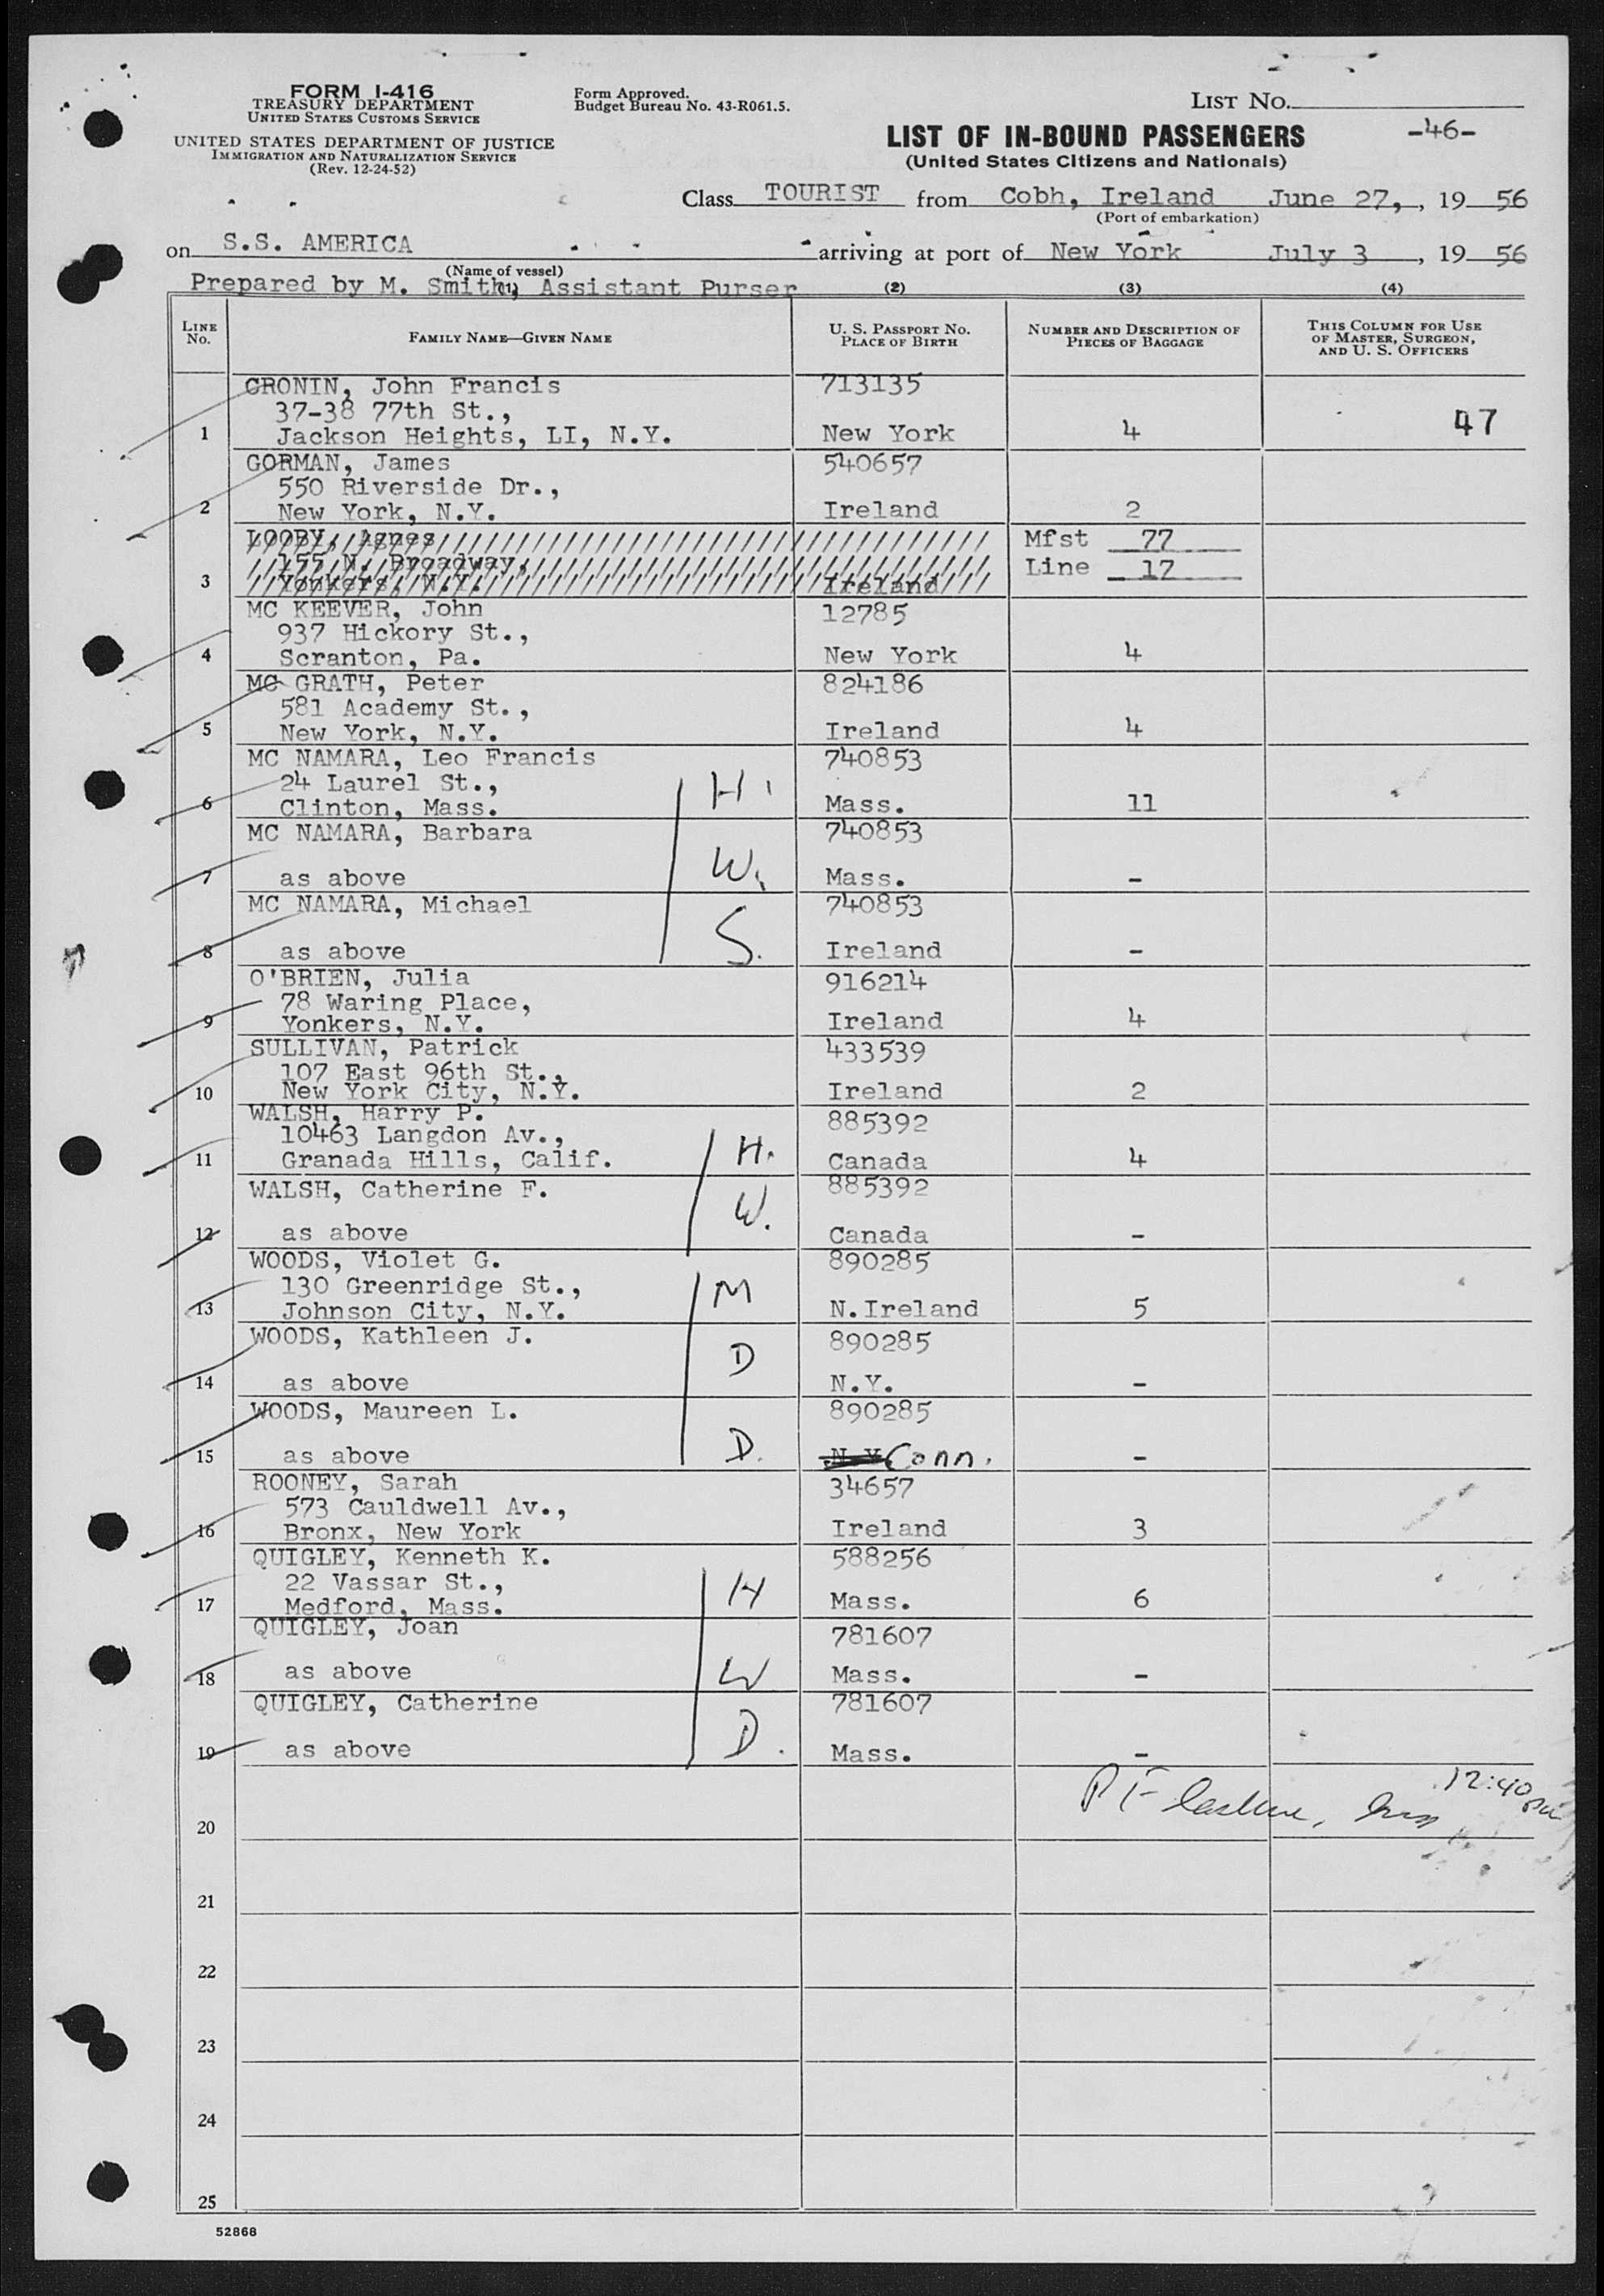 FORM I-416
TREASURY DEPARTMENT
UNITED STATES CUSTOMS SERVICE
UNITED STATES DEPARTMENT OF JUSTICE
IMMIGRATION AND NATURALIZATION SERVICE
(Rev. 12-24-52)
Form Approved.
Budget Bureau No. 43-R061.5.
LIST NO.
LIST OF IN-BOUND PASSENGERS -46-
(United States Citizens and Nationals)
Class TOURIST from Cobh, Ireland June 27, , 19 56
(Port of embarkation)
on S.S. AMERICA arriving at port of New York July 3 , 19 56
(Name of vessel)
Prepared by M. Smith, Assistant Purser (1) (2) (3) (4)
LINE NO. FAMILY NAME—GIVEN NAME U. S. PASSPORT NO. PLACE OF BIRTH NUMBER AND DESCRIPTION OF PIECES OF BAGGAGE THIS COLUMN FOR USE OF MASTER, SURGEON, AND U. S. OFFICERS
CRONIN, John Francis 713135
37-38 77th St.,
1 Jackson Heights, LI, N.Y. New York 4 47
GORMAN, James 540657
550 Riverside Dr.,
2 New York, N.Y. Ireland 2
LOOBY, Agnes Mfst 77
155 N. Broadway, Line 17
3 Yonkers, N.Y. Ireland
MC KEEVER, John 12785
937 Hickory St.,
4 Scranton, Pa. New York 4
MC GRATH, Peter 824186
581 Academy St.,
5 New York, N.Y. Ireland 4
MC NAMARA, Leo Francis 740853
24 Laurel St., H.
6 Clinton, Mass. Mass. 11
MC NAMARA, Barbara 740853
7 as above W. Mass. -
MC NAMARA, Michael 740853
8 as above S. Ireland -
O'BRIEN, Julia 916214
78 Waring Place,
9 Yonkers, N.Y. Ireland 4
SULLIVAN, Patrick 433539
107 East 96th St.,
10 New York City, N.Y. Ireland 2
WALSH, Harry P. 885392
10463 Langdon Av.,
11 Granada Hills, Calif. H. Canada 4
WALSH, Catherine F. 885392
12 as above W. Canada -
WOODS, Violet G. 890285
130 Greenridge St., M
13 Johnson City, N.Y. N.Ireland 5
WOODS, Kathleen J. 890285
14 as above D N.Y. -
WOODS, Maureen L. 890285
15 as above D. N.Y. Conn. -
ROONEY, Sarah 34657
573 Cauldwell Av.,
16 Bronx, New York Ireland 3
QUIGLEY, Kenneth K. 588256
22 Vassar St., H
17 Medford, Mass. Mass. 6
QUIGLEY, Joan 781607
18 as above W Mass. -
QUIGLEY, Catherine 781607
19 as above D. Mass. -
12:40
20
21
22
23
24
25
52868